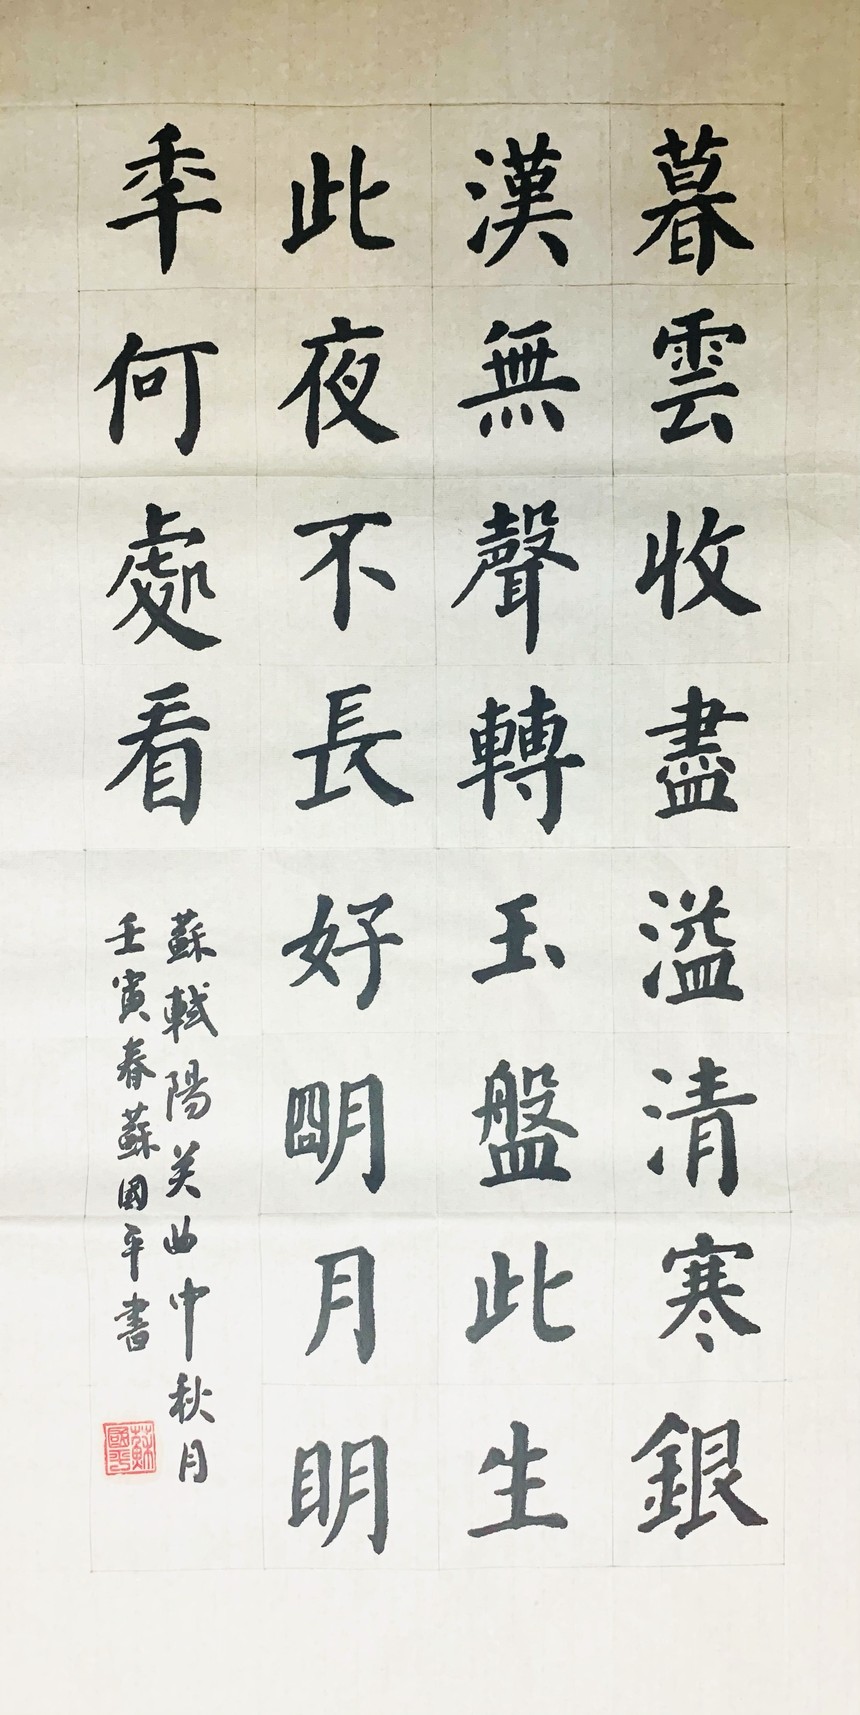 暮雲收盡溢清寒銀
漢無聲轉玉盤此生
此夜不長好朙月明
秊何處看
蘇軾陽关曲中秋月
壬寅春蘇國平書
蘇國平